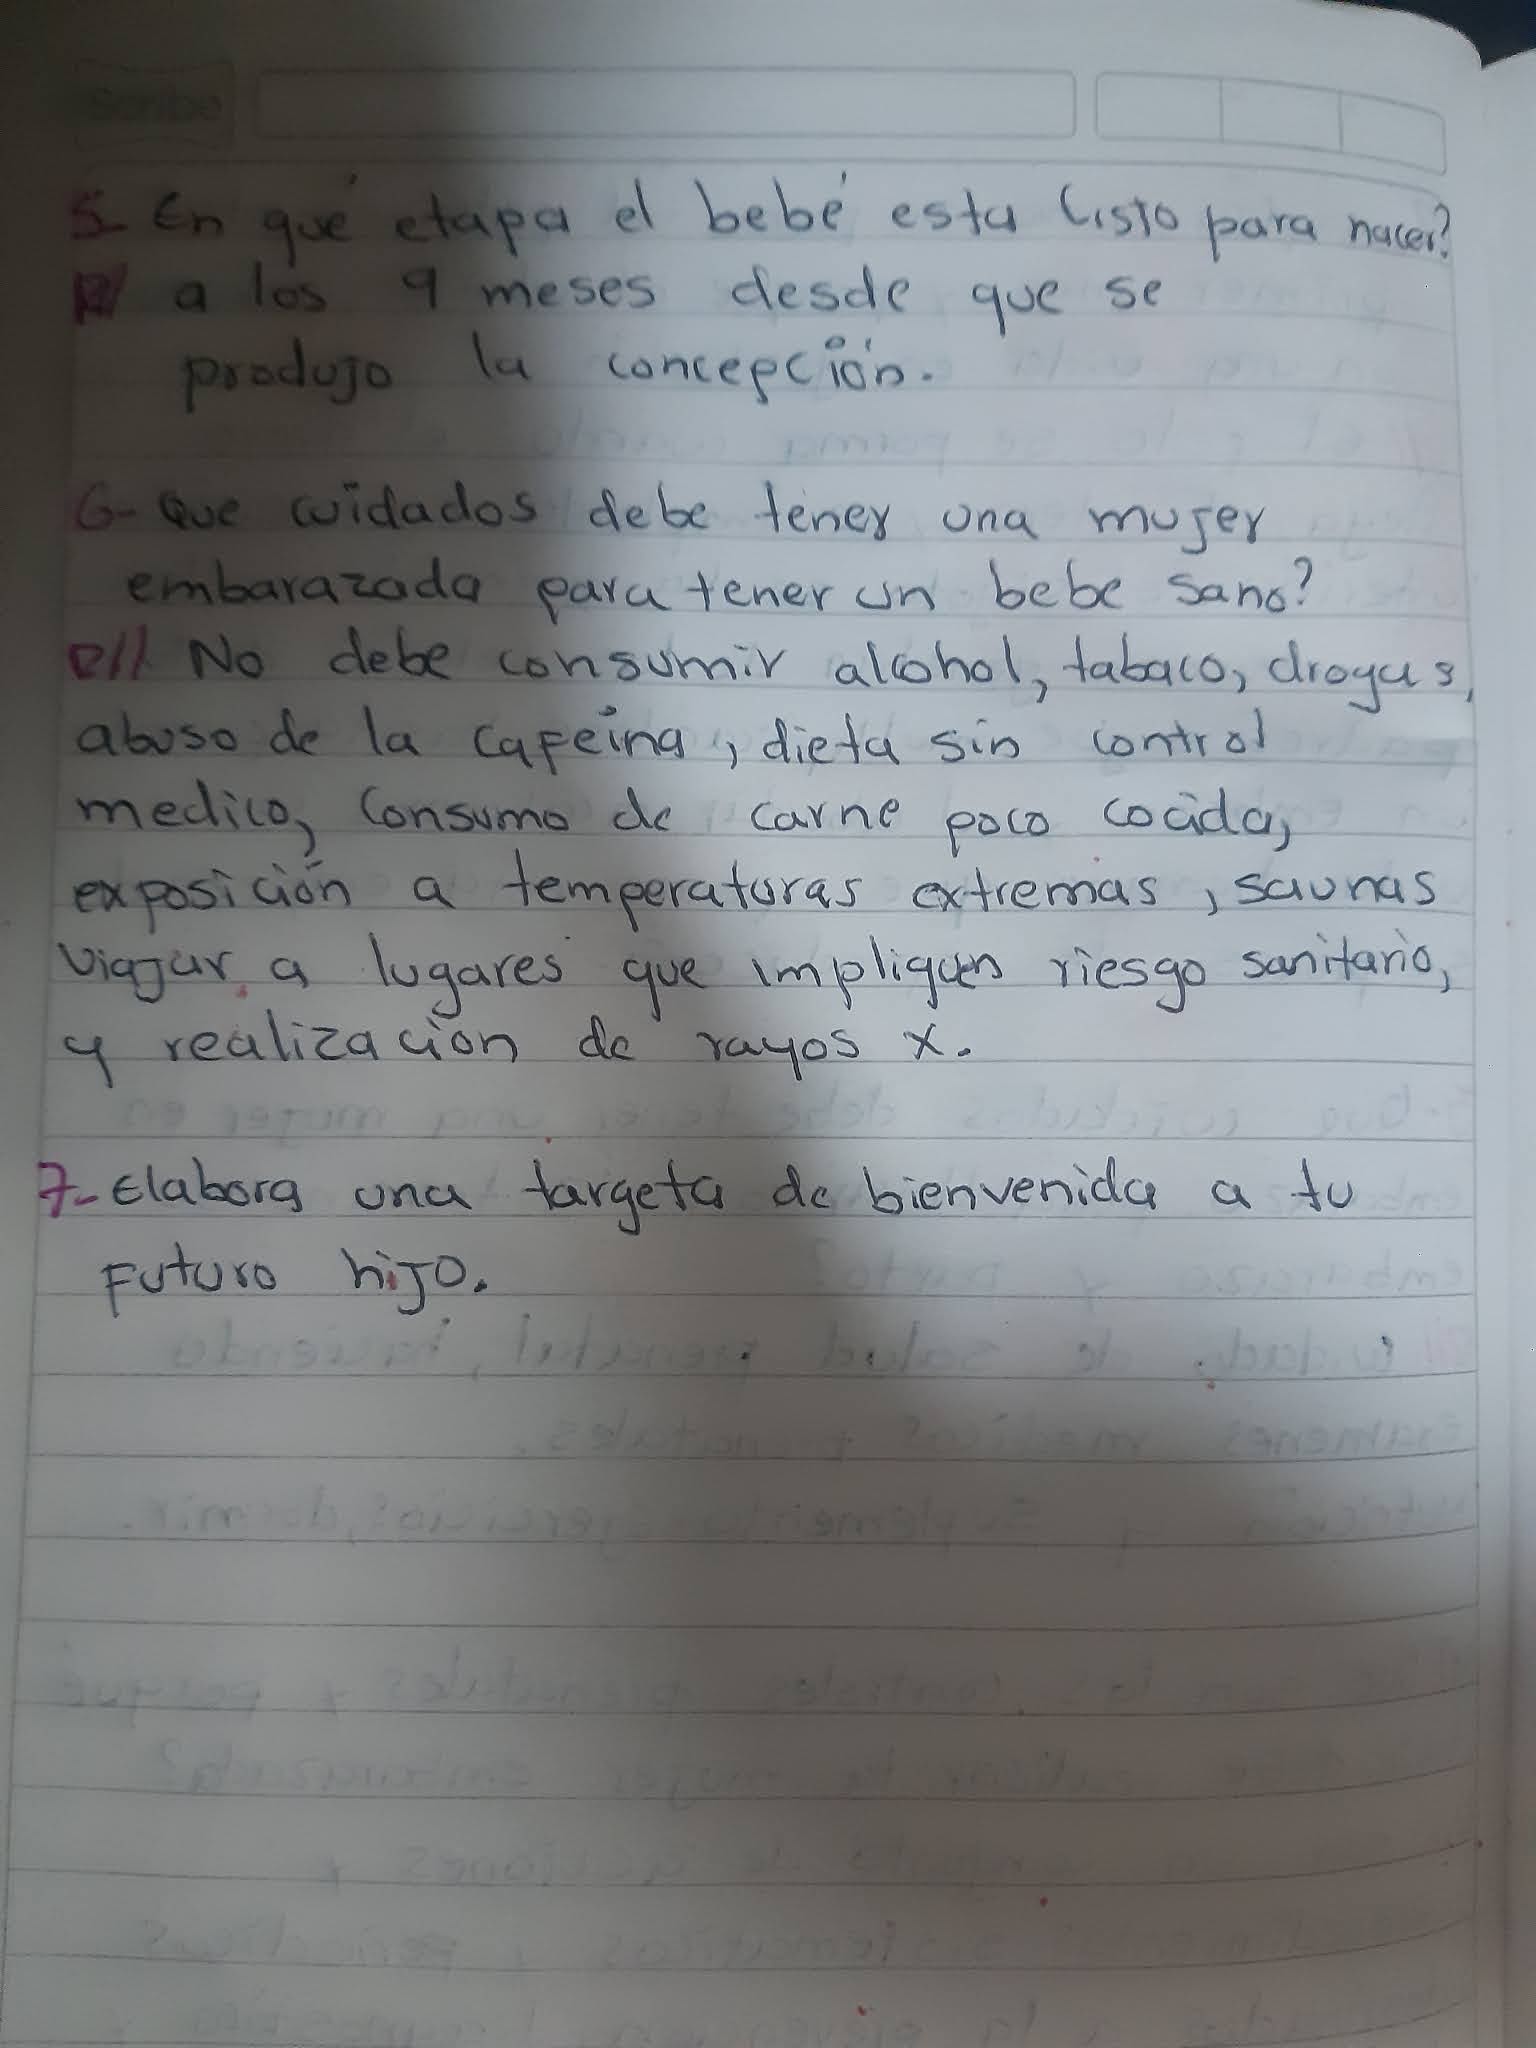 Scribe
5- En qué etapa el bebé esta listo para nacer?
R/ a los 9 meses desde que se
produjo la concepción.
6- Que cuidados debe tener una mujer
embarazada para tener un bebe sano?
R// No debe consumir alcohol, tabaco, drogas,
abuso de la cafeína, dieta sin control
medico, Consumo de carne poco cocida,
exposición a temperaturas extremas, saunas
viajar a lugares que impliquen riesgo sanitario,
y realización de rayos x.
7- Elabora una targeta de bienvenida a tu
futuro hijo.